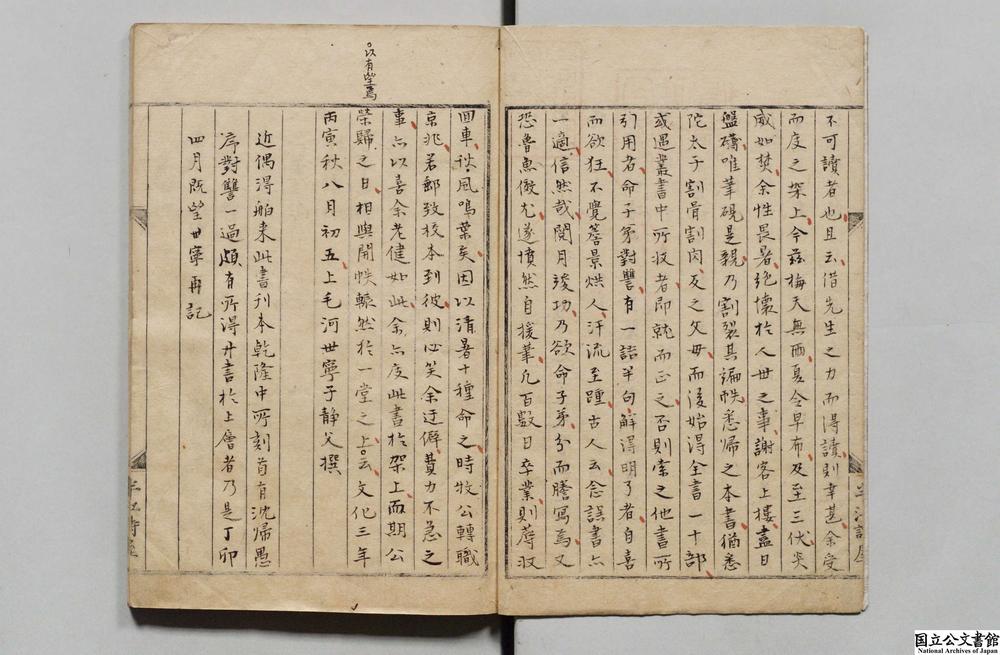 不可讀者也且云借先生之力而得讀則幸甚余受
而度之架上今茲梅天無雨夏令早布及至三伏炎
威如焚余性畏暑絕懷於人世之事謝客上樓盡日
盤礴唯筆硯是親乃割裂其編帙悉歸之本書猶悉
陀太子割骨割肉反之父母而後始得全書一十部
或遇叢書中所收者即就而正之否則索之他書所
引用者命子弟對讐有一語半句解得明了者自喜
而欲狂不覺簷景烘人汗流至踵古人云念誤書亦
一適信然哉閱月竣功乃欲命子弟分而謄寫焉又
恐魯魚傚尤遂憤然自援筆凡百數日卒業則蓐收
回車秋風鳴葉矣因以清暑十種命之時牧公轉職
京兆若郵致校本到彼則必笑余迂僻費力不急之
事亦以喜余老健如此余亦度此書於架上而期公
榮歸之日相與開帙轅然於一堂之上云文化三年
丙寅秋八月初五上毛河世寧子靜父撰
以有望焉
近偶得舶來此書刊本乾隆中所刻首有沈歸愚
序對讐一過頗有所得廿書於上層者乃是丁卯
四月既望世寧再記
国立公文書館
National Archives of Japan